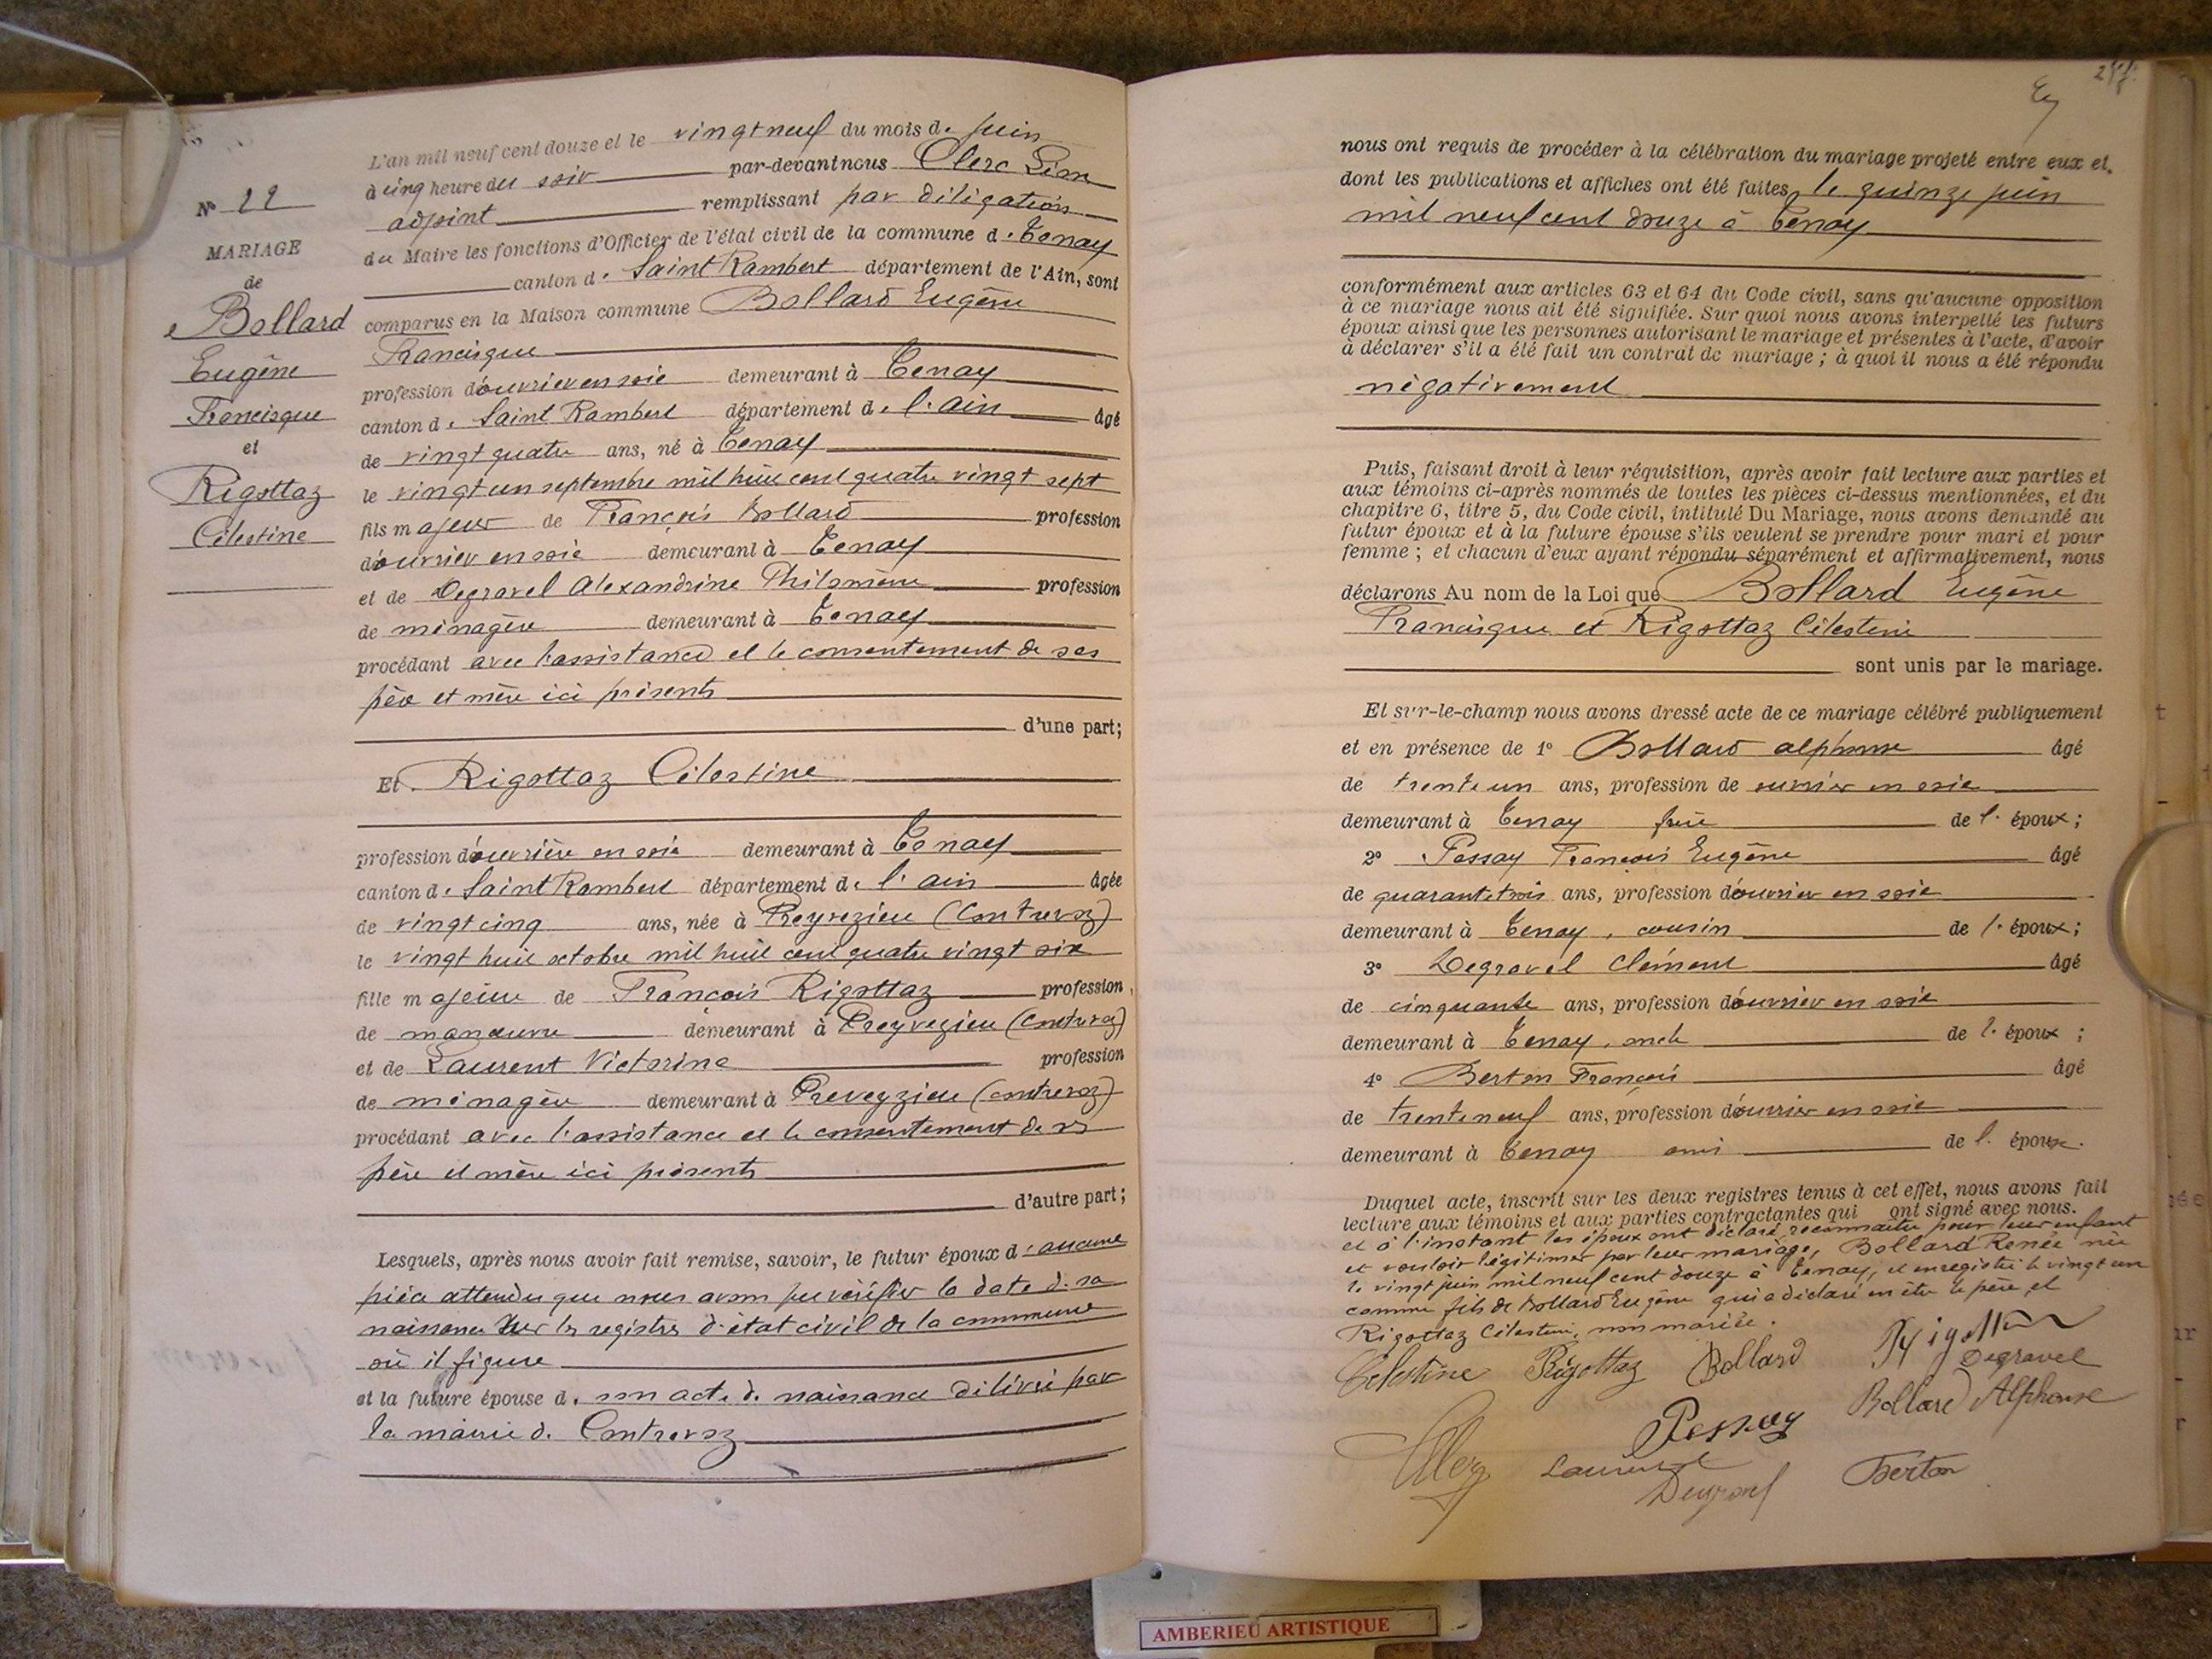 L'an mil neuf cent douze et le vingt neuf du mois de juin
à cinq heure du soir par-devant nous Clerc Léon
adjoint remplissant par déligation
du Maire les fonctions d'Officier de l'état civil de la commune de Tenay
canton de Saint Rambert département de l'Ain, sont
comparus en la Maison commune Bollard Eugène
Francisque
profession d'ouvrier en soie demeurant à Tenay
canton de Saint Rambert département de l'ain âgé
de vingt quatre ans, né à Tenay
le vingt un septembre mil huit cent quatre vingt sept
fils majeur de François Bollard profession
d'ouvrier en soie demeurant à Tenay
et de Degravel Alexandrine Philomène profession
de ménagère demeurant à Tenay
procédant avec l'assistance et le consentement de ses
père et mère ici présents
d'une part;
Et Rigottaz Célestine
profession d'ouvrière en soie demeurant à Tenay
canton de Saint Rambert département de l'ain âgée
de vingt cinq ans, née à Preyvezieu (Contrevoz)
le vingt huit octobre mil huit cent quatre vingt six
fille majeure de François Rigottaz profession
de manœuvre demeurant à Preyvezieu (Contrevoz)
et de Laurent Victorine profession
de ménagère demeurant à Preveyzieu (Contrevoz)
procédant avec l'assistance et le consentement de ses
père et mère ici présents
d'autre part;
Lesquels, après nous avoir fait remise, savoir, le futur époux d'aucune
pièce attendu que nous avons pu vérifier la date de sa
naissance sur les registres d'état civil de la commune
où il figure
et la future épouse de son acte de naissance délivré par
la mairie de Contrevoz
N° 22
MARIAGE
de
Bollard
Eugène
Francisque
et
Rigottaz
Célestine
nous ont requis de procéder à la célébration du mariage projeté entre eux et
dont les publications et affiches ont été faites le quinze juin
mil neuf cent douze à Tenay
conformément aux articles 63 et 64 du Code civil, sans qu'aucune opposition
à ce mariage nous ait été signifiée. Sur quoi nous avons interpellé les futurs
époux ainsi que les personnes autorisant le mariage et présentes à l'acte, d'avoir
à déclarer s'il a été fait un contrat de mariage; à quoi il nous a été répondu
négativement
Puis, faisant droit à leur réquisition, après avoir fait lecture aux parties et
aux témoins ci-après nommés de toutes les pièces ci-dessus mentionnées, et du
chapitre 6, titre 5, du Code civil, intitulé Du Mariage, nous avons demandé au
futur époux et à la future épouse s'ils veulent se prendre pour mari et pour
femme; et chacun d'eux ayant répondu séparément et affirmativement, nous
déclarons Au nom de la Loi que Bollard Eugène
Francisque et Rigottaz Célestine
sont unis par le mariage.
Et sur-le-champ nous avons dressé acte de ce mariage célébré publiquement
et en présence de 1° Bollard alphonse âgé
de trente un ans, profession de ouvrier en soie
demeurant à Tenay frère de l'époux;
2° Pessay François Eugène âgé
de quarante trois ans, profession d'ouvrier en soie
demeurant à Tenay, cousin de l'époux;
3° Degravel Clément âgé
de cinquante ans, profession d'ouvrier en soie
demeurant à Tenay, oncle de l'époux;
4° Berton François âgé
de trente neuf ans, profession d'ouvrier en soie
demeurant à Tenay ami de l'époux.
Duquel acte, inscrit sur les deux registres tenus à cet effet, nous avons fait
lecture aux témoins et aux parties contractantes qui ont signé avec nous.
et à l'instant les époux ont déclaré reconnaitre pour leur enfant
et vouloir légitimer par leur mariage, Bollard Renée née
le vingt juin mil neuf cent douze à Tenay, et enregistré le vingt un
comme fils de Bollard Eugène qui a déclaré en être le père et
Rigottaz Célestine, non mariée.
Célestine Rigottaz Bollard Rigottaz
Degravel
Bollard Alphonse
Pessay
Clerc Laurent Berton
Degravel
AMBERIEU ARTISTIQUE